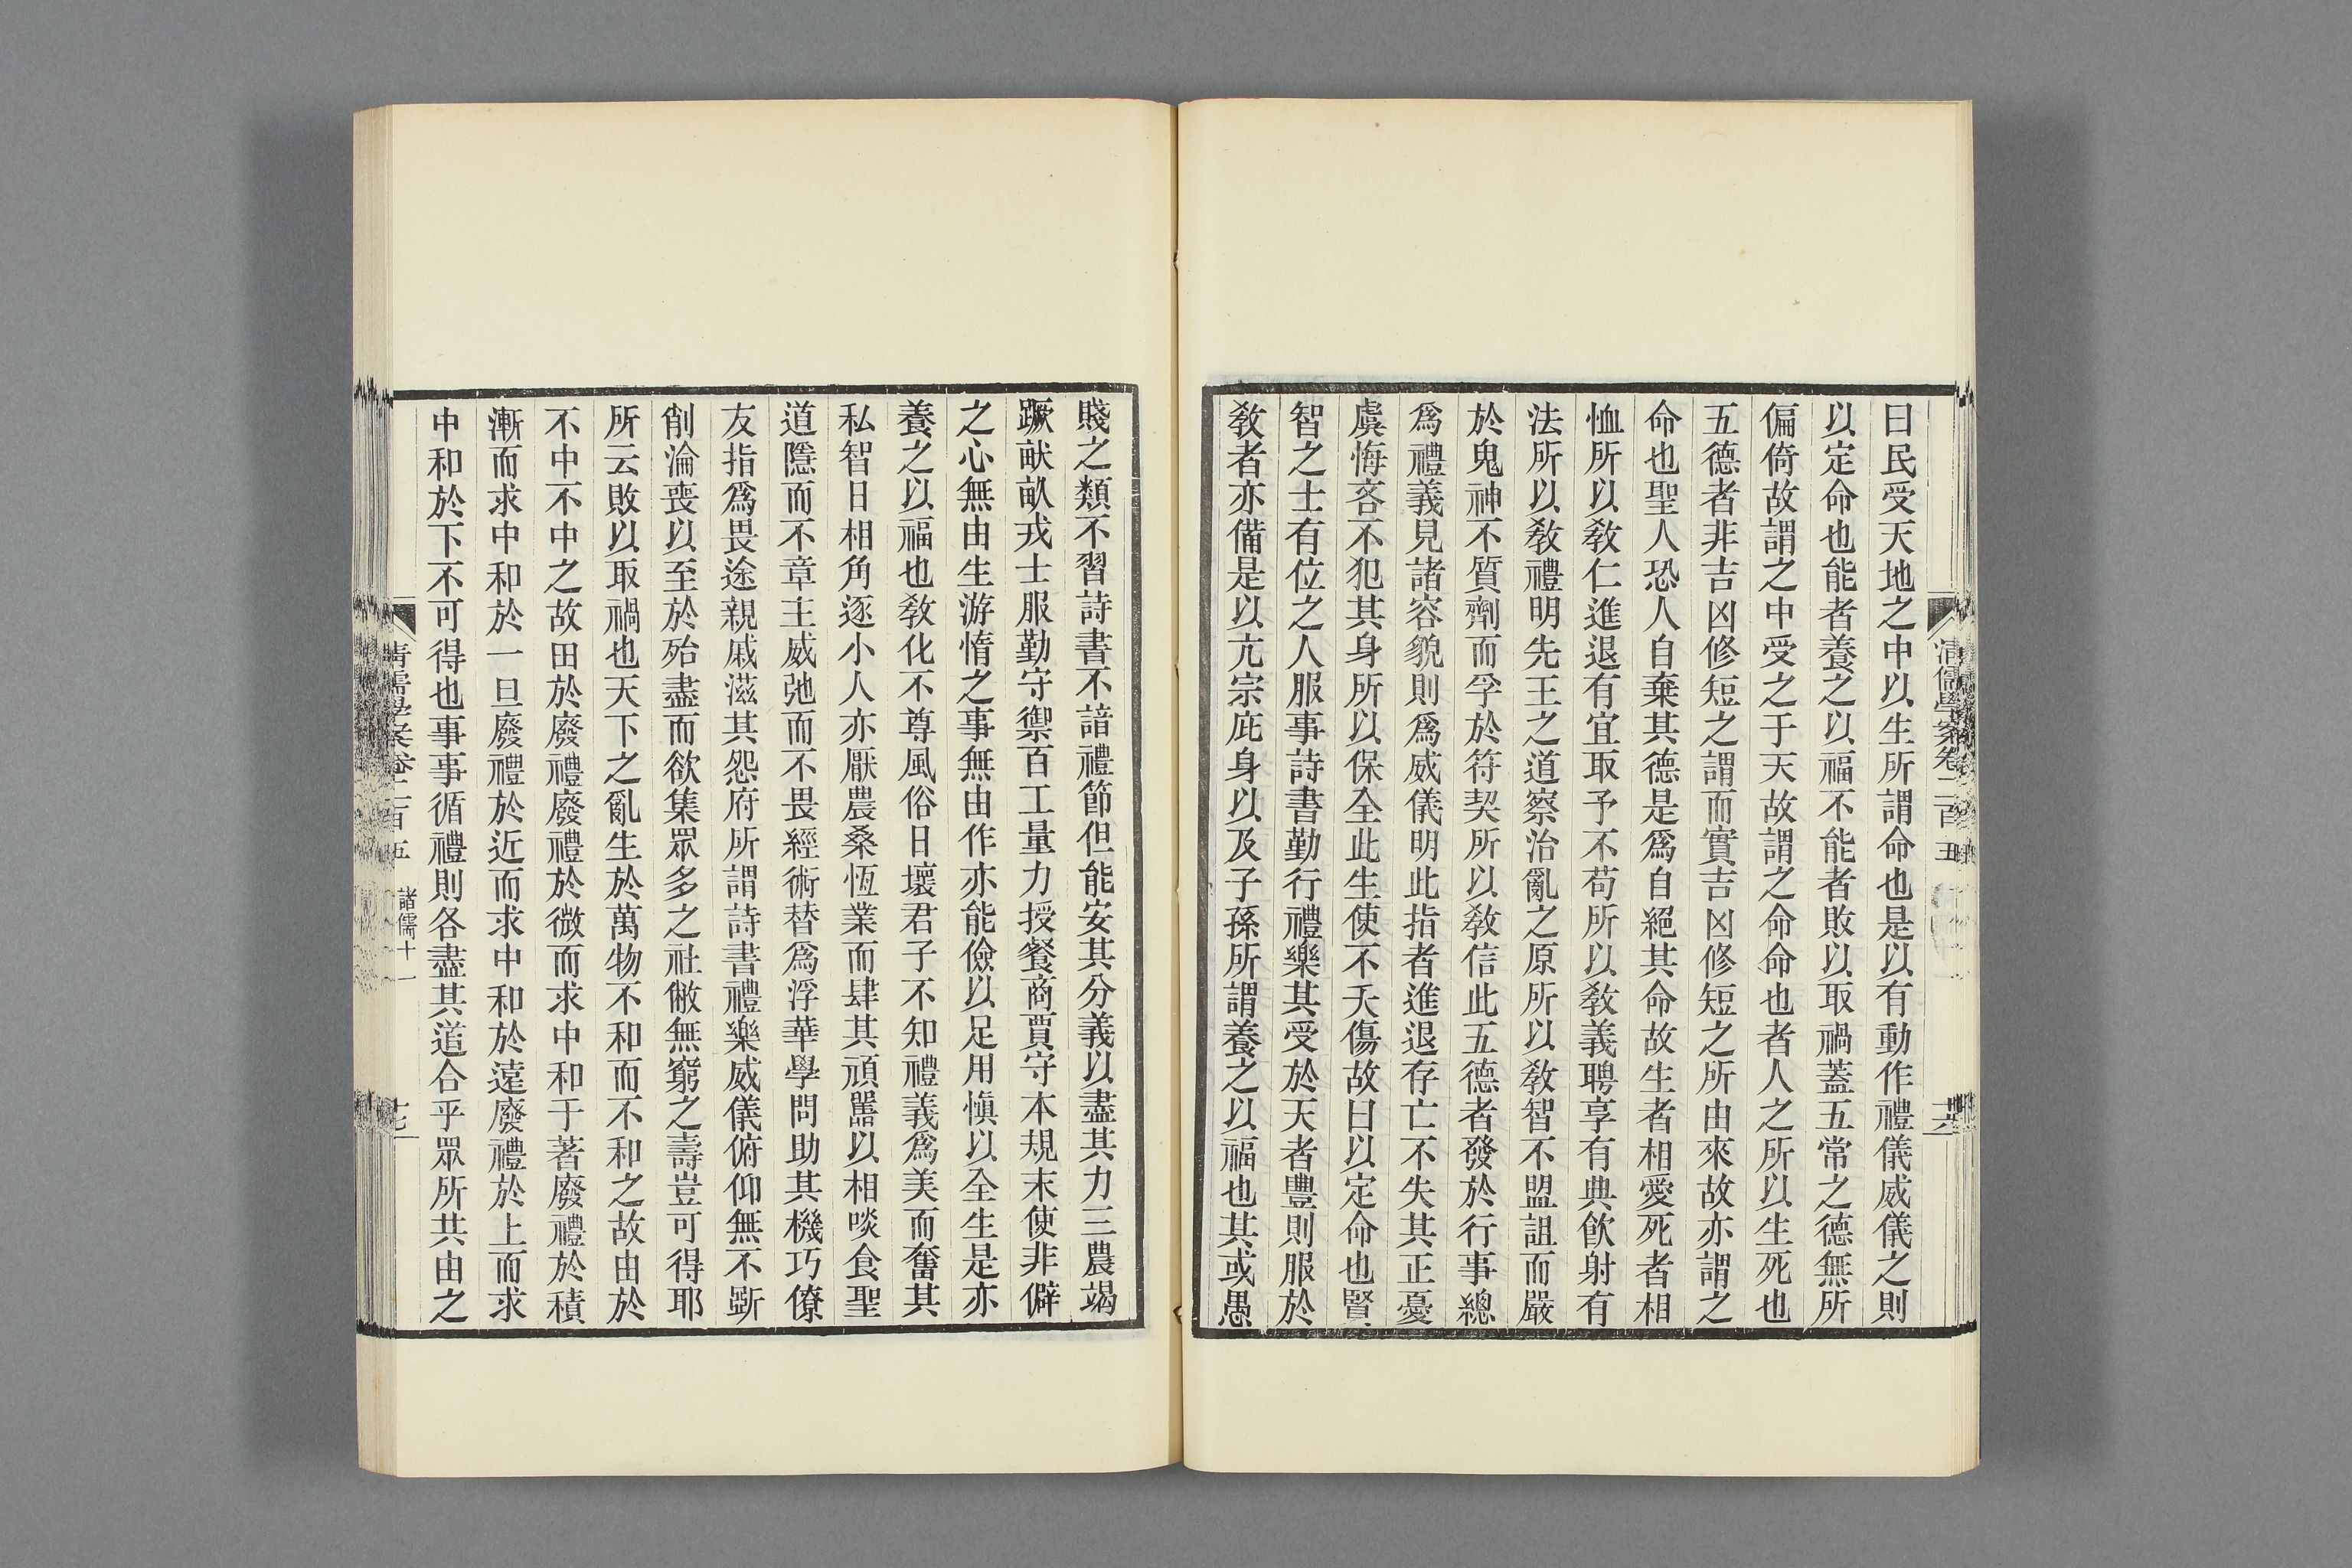 曰民受天地之中以生所謂命也是以有動作禮儀威儀之則
以定命也能者養之以福不能者敗以取禍蓋五常之德無所
偏倚故謂之中受之于天故謂之命命也者人之所以生死也
五德者非吉凶修短之謂而實吉凶修短之所由來故亦謂之
命也聖人恐人自棄其德是爲自絕其命故生者相愛死者相
恤所以敎仁進退有宜取予不苟所以敎義聘享有典飮射有
法所以敎禮明先王之道察治亂之原所以敎智不盟詛而嚴
於鬼神不質劑而孚於符契所以敎信此五德者發於行事總
爲禮義見諸容貌則爲威儀明此指者進退存亡不失其正憂
虞悔吝不犯其身所以保全此生使不夭傷故曰以定命也賢
智之士有位之人服事詩書勤行禮樂其受於天者豐則服於
敎者亦備是以亢宗庇身以及子孫所謂養之以福也其或愚
清儒學案卷二百五
賤之類不習詩書不諳禮節但能安其分義以盡其力三農竭
蹶猷畝戎士服勤守禦百工量力授餐商賈守本規末使非僻
之心無由生游惰之事無由作亦能儉以足用愼以全生是亦
養之以福也敎化不尊風俗日壞君子不知禮義爲美而奮其
私智日相角逐小人亦厭農桑恆業而肆其頑嚚以相啖食聖
道隱而不章王威弛而不畏經術替爲浮華學問助其機巧僚
友指爲畏途親戚滋其怨府所謂詩書禮樂威儀俯仰無不斲
削淪喪以至於殆盡而欲集眾多之社僘無窮之壽豈可得耶
所云敗以取禍也天下之亂生於萬物不和而不和之故由於
不中不中之故由於廢禮廢禮於微而求中和于著廢禮於積
漸而求中和於一旦廢禮於近而求中和於遠廢禮於上而求
中和於下不可得也事事循禮則各盡其道合乎眾所共由之
清儒學案卷二百五 諸儒十一 十七